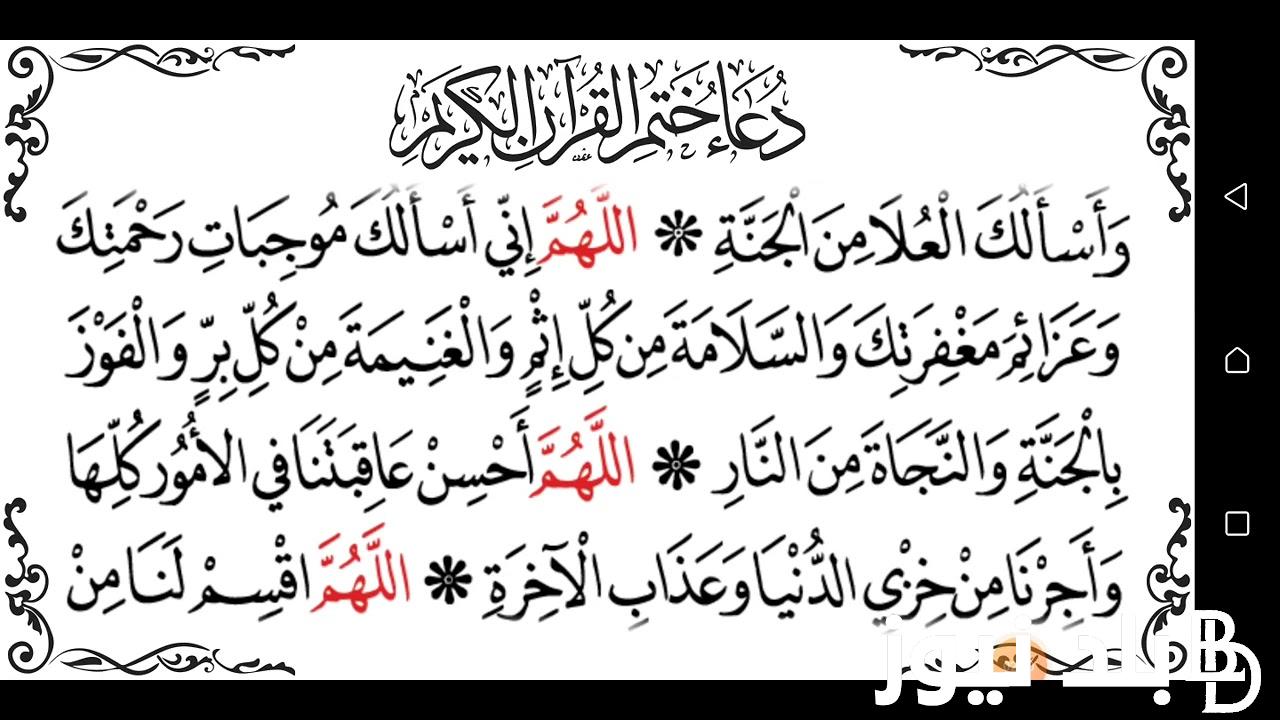 دُعَاءُ خَتْمِ الْقُرْآنِ الْكَرِيمِ
وَأَسْأَلُكَ الْعُلَا مِنَ الْجَنَّةِ ❋ اللَّهُمَّ إِنِّي أَسْأَلُكَ مُوجِبَاتِ رَحْمَتِكَ
وَعَزَائِمَ مَغْفِرَتِكَ وَالسَّلَامَةَ مِن كُلِّ إِثْمٍ وَالْغَنِيمَةَ مِنْ كُلِّ بِرٍّ وَالْفَوْزَ
بِالْجَنَّةِ وَالنَّجَاةَ مِنَ النَّارِ ❋ اللَّهُمَّ أَحْسِنْ عَاقِبَتَنَا فِي الأُمُورِ كُلِّهَا
وَأَجِرْنَا مِنْ خِزْيِ الدُّنْيَا وَعَذَابِ الْآخِرَةِ ❋ اللَّهُمَّ اقْسِمْ لَنَا مِنْ
بلاد نيوز B